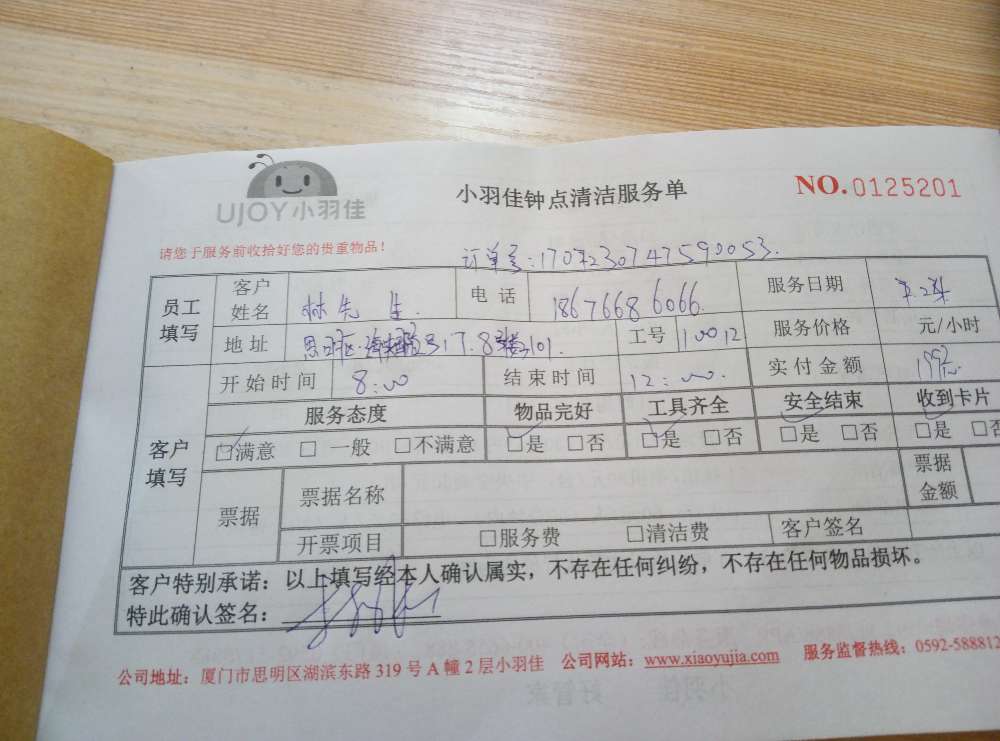 UJOY小羽佳
小羽佳钟点清洁服务单
NO.0125201
请您于服务前收拾好您的贵重物品！
订单号：1707230747590053.
员工填写 客户姓名 林先生. 电话 18676686066. 服务日期 7.24
地址 思明区 317.8 101. 工号 110012 服务价格 元/小时
客户填写 开始时间 8:00 结束时间 12:00. 实付金额 199元
服务态度 物品完好 工具齐全 安全结束 收到卡片
☐满意 ☐一般 ☐不满意 ☐是 ☐否 ☐是 ☐否 ☐是 ☐否 ☐是 ☐否
票据 票据名称 票据金额
开票项目 ☐服务费 ☐清洁费 客户签名
客户特别承诺：以上填写经本人确认属实，不存在任何纠纷，不存在任何物品损坏。
特此确认签名：
公司地址：厦门市思明区湖滨东路 319 号 A 幢 2 层小羽佳 公司网站：www.xiaoyujia.com 服务监督热线：0592-588812